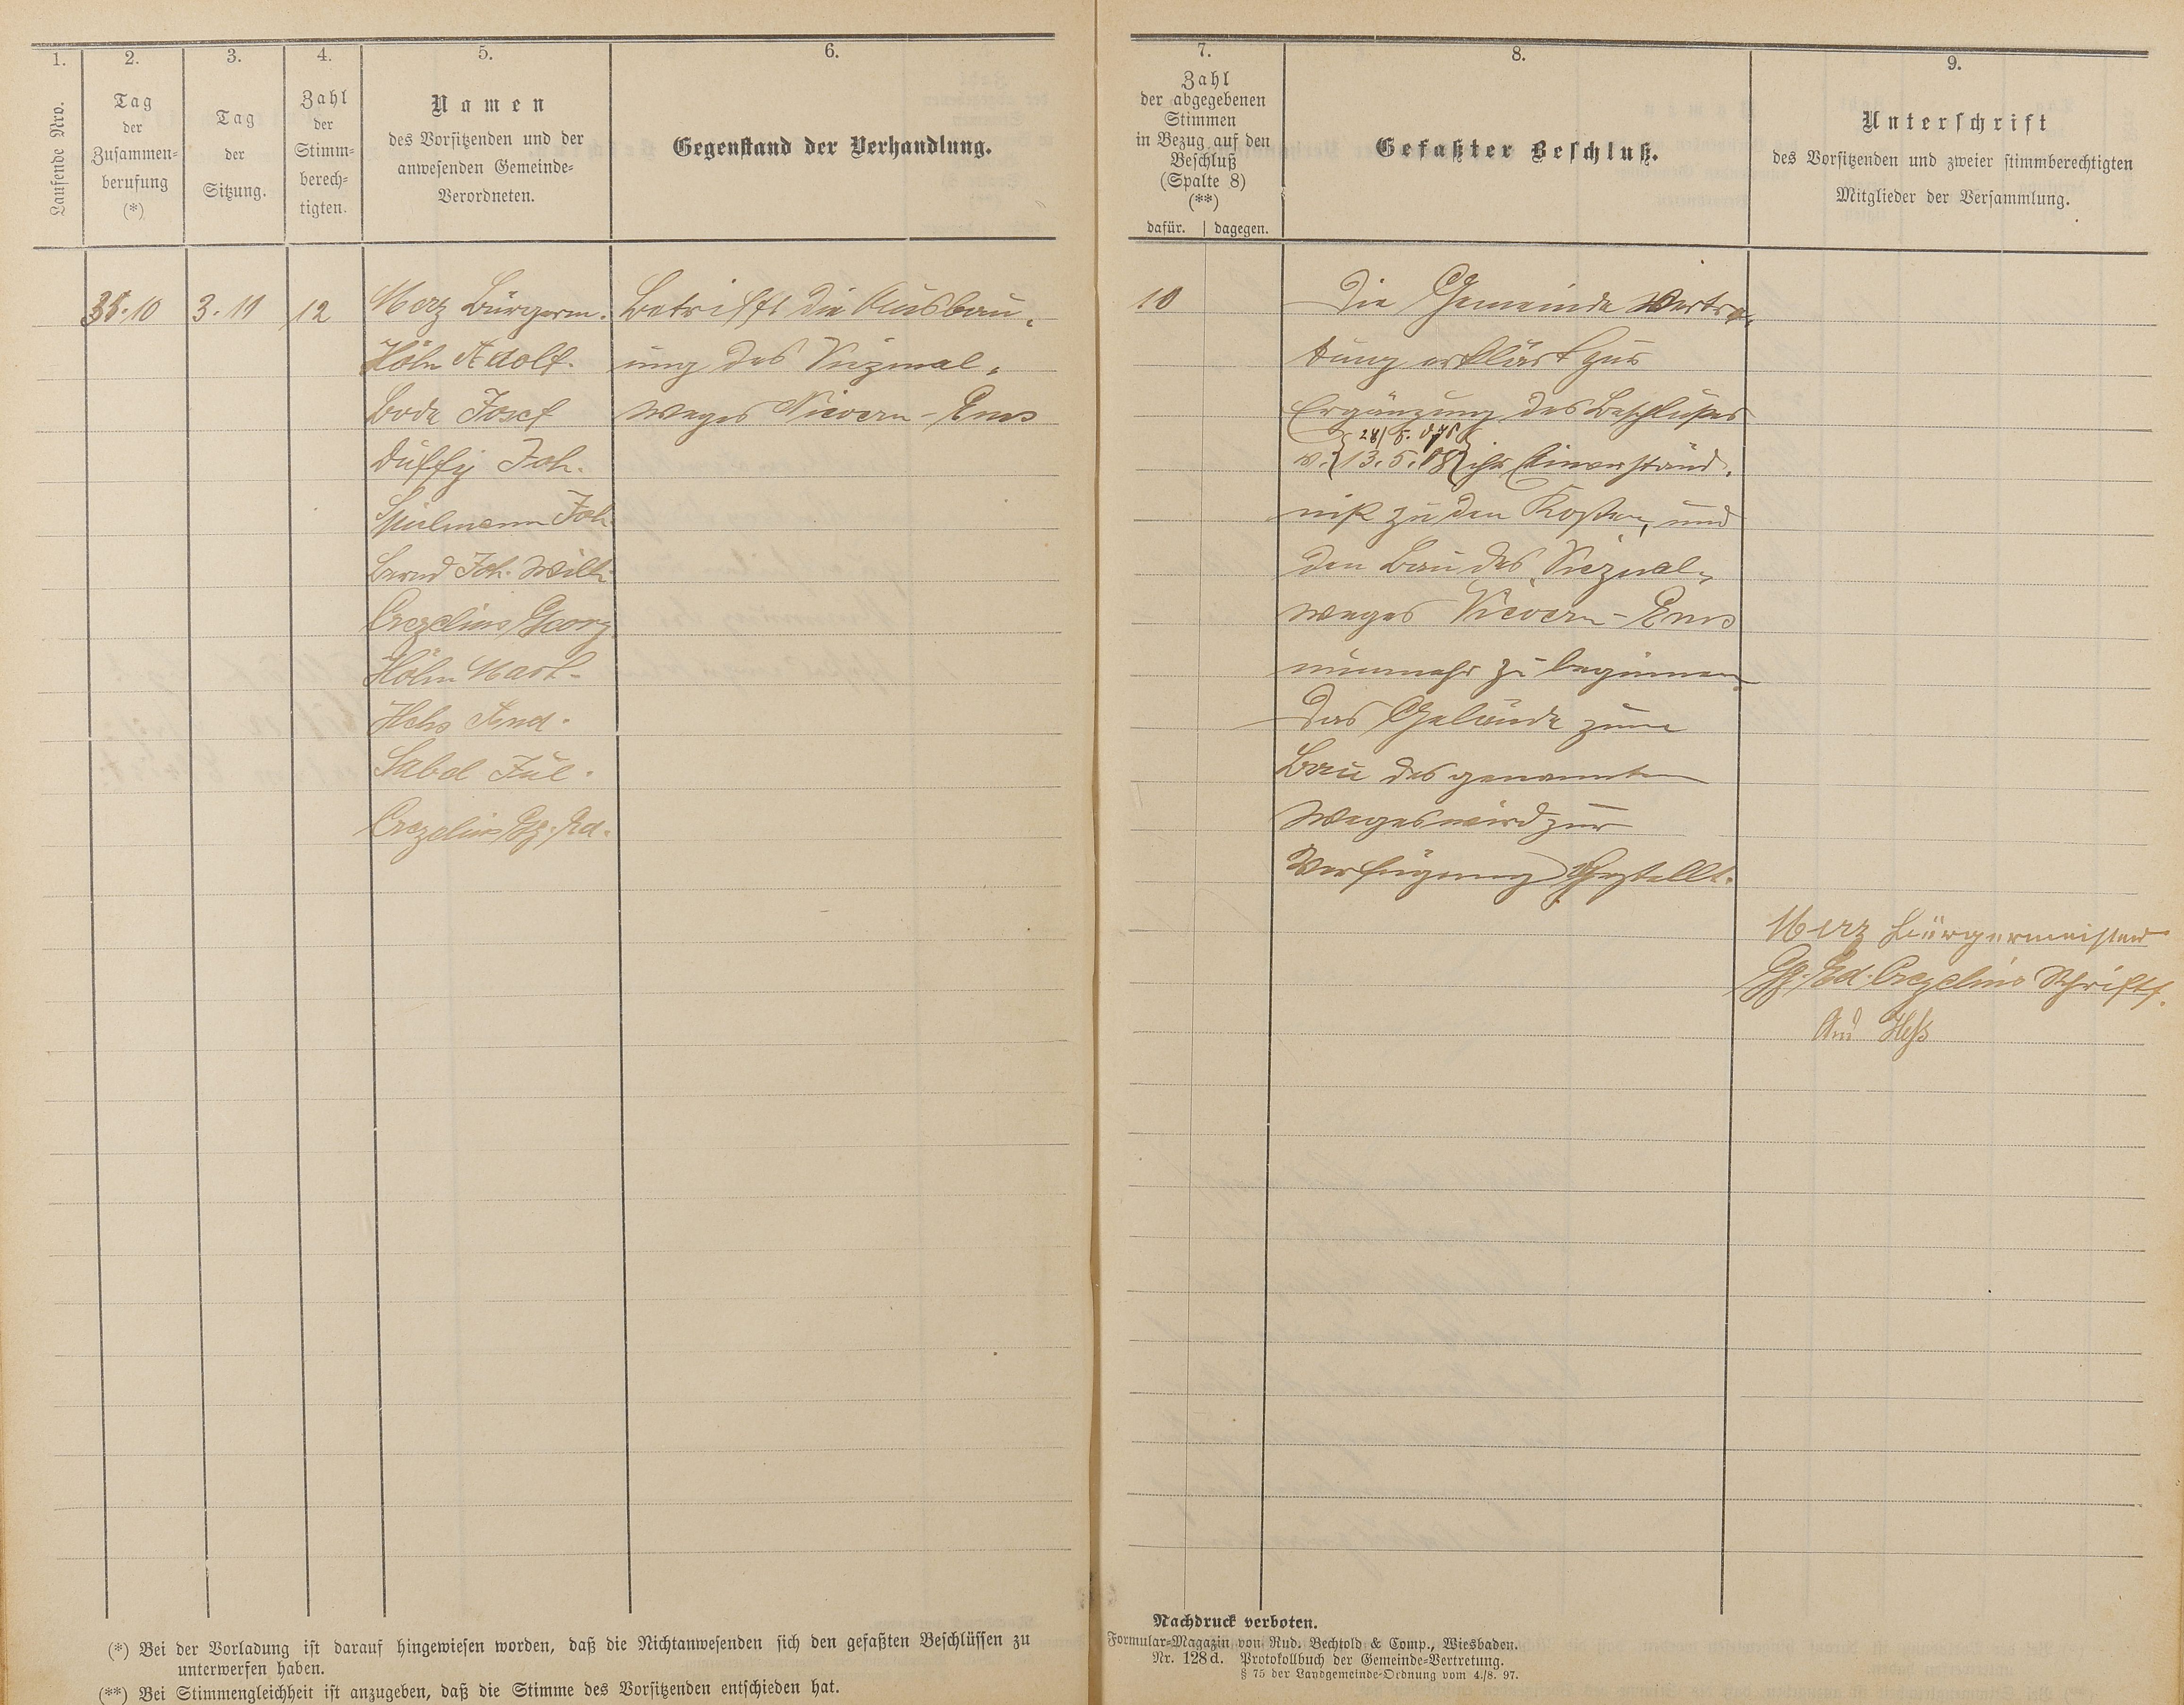 1.
Laufende Nro.
2.
Tag
der
Zusammen-
berufung
(*)
3.
Tag
der
Sitzung.
4.
Zahl
der
Stimm-
berech-
tigten.
5.
Namen
des Vorsitzenden und der
anwesenden Gemeinde-
Verordneten.
6.
Gegenstand der Verhandlung.
7.
Zahl
der abgegebenen
Stimmen
in Bezug auf den
Beschluß
(Spalte 8)
(**)
dafür. | dagegen.
8.
Gefaßter Beschluß.
9.
Unterschrift
des Vorsitzenden und zweier stimmberechtigten
Mitglieder der Versammlung.
3.11
12
Merz Bürgerm.
Höhn Adolf.
Bode Josef
Düffy Joh.
Spielmann Joh
Bernd Joh. Wilh.
Crezelius Georg
Höhn Mart.
Hehs And.
Sabel Jul.
Crezelius Gg. Ed.
Betrifft die Ausbau-
ung des Vizinal-
weges Nievern-Ems
10
Die Gemeinde Vertre-
tung erklärt zur
Ergänzung des Beschlußes
v. 13.5. ihr Einverständ-
niß zu den Kosten, und
den Bau des Vizinal-
weges Nievern-Ems
nunmehr zu beginnen
Das Gelände zum
Bau des genannten
Weges wird zur
Verfügung Gestellt.
Merz Bürgermeister
Gg. Ed. Crezelius Schriftf.
And Heß
(*) Bei der Vorladung ist darauf hingewiesen worden, daß die Nichtanwesenden sich den gefaßten Beschlüssen zu
unterwerfen haben.
(**) Bei Stimmengleichheit ist anzugeben, daß die Stimme des Vorsitzenden entschieden hat.
Nachdruck verboten.
Formular-Magazin von Rud. Bechtold & Comp., Wiesbaden.
Nr. 128d. Protokollbuch der Gemeinde-Vertretung.
§ 75 der Landgemeinde-Ordnung vom 4./8. 97.